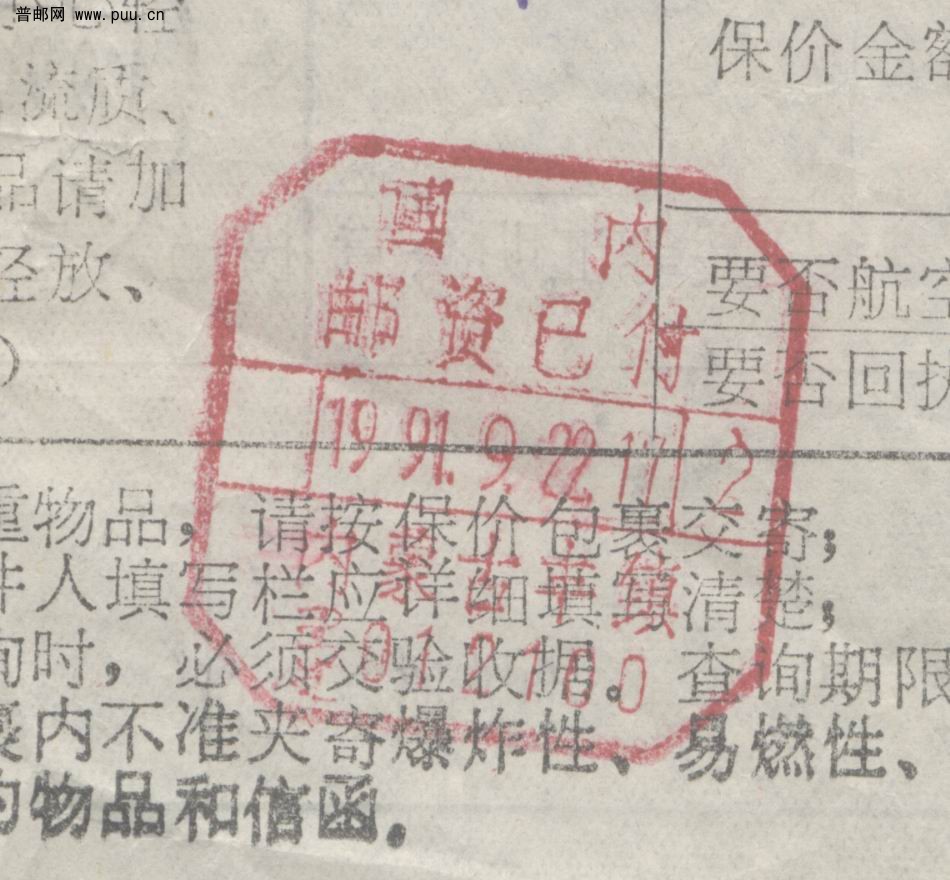 普邮网 www.puu.cn
保价金额
流质、
品请加
轻放、
)
国 内
邮资已付
要否航空
要否回执
1991.9.22.17 2
重物品，请按保价包裹交寄；
件人填写栏应详细填写清楚，
询时，必须交验收据。查询期限
内不准夹寄爆炸性、易燃性、
的物品和信函。